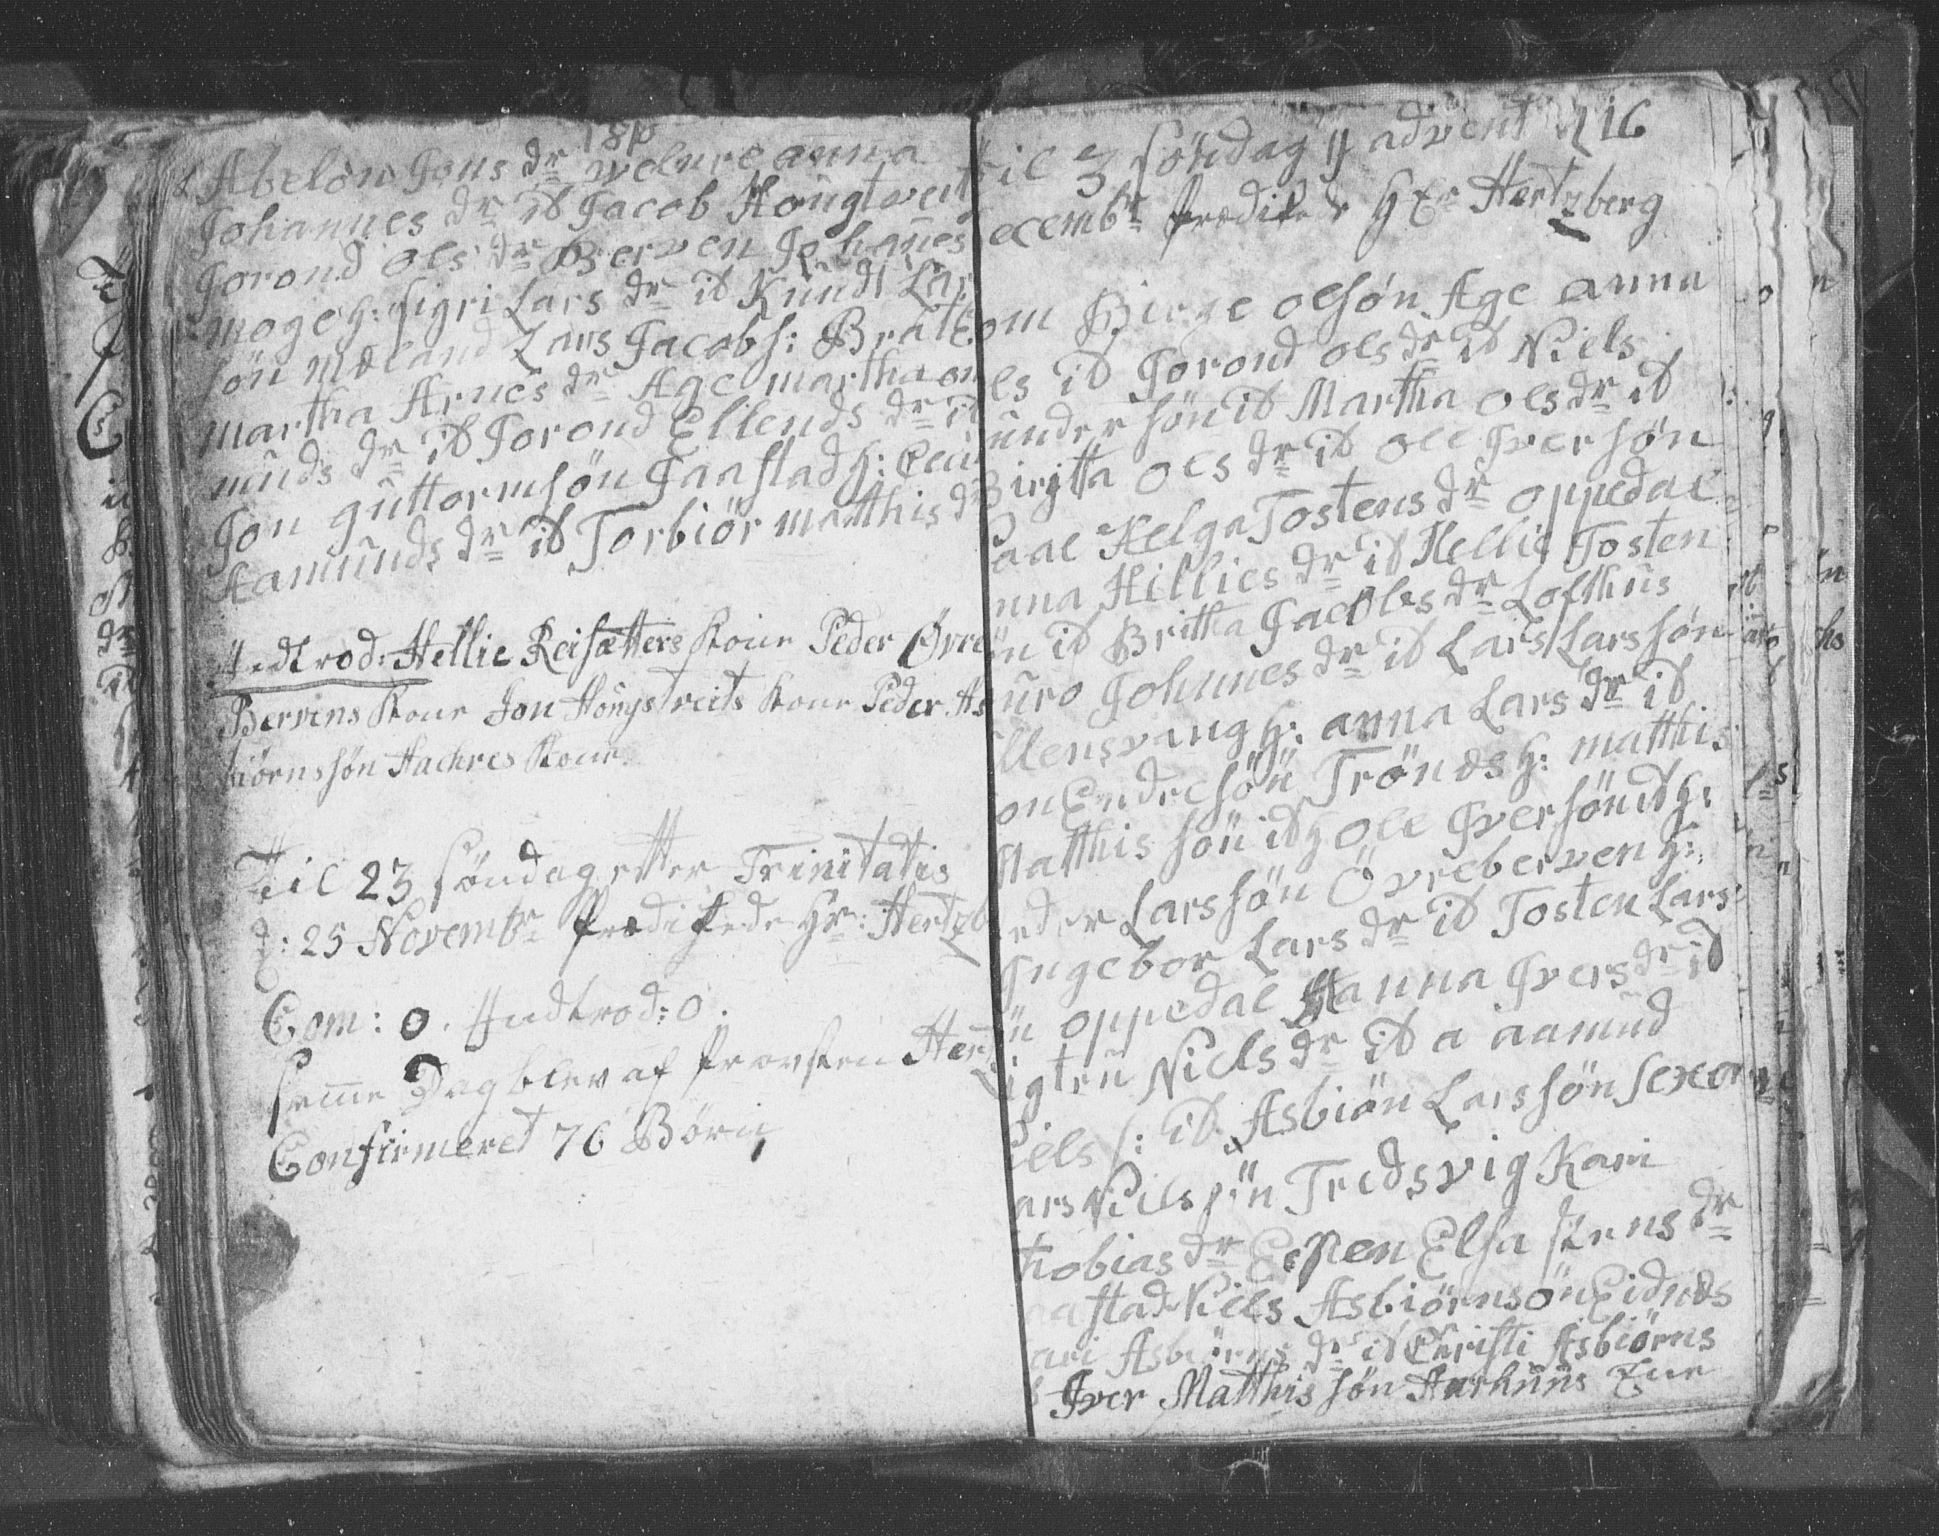 1810
Abelon Jons dr Velure anna
Johannes dr it Jacob Hougtveit
Jorond ols dr Berven Johannes
moge h: sigri Lars dr it Knud Lar
søn Mæland Lars Jacobs: Brate
martha Arnes dr Age martha om
unds dr it Jorond Ellends dr it
Jon guttormsøn Jaastad h:
Aamunds dr it Torbiør matthis dr
Indtrod: Hellie Reisætters Kone Peder Øvre
Bervens Kone Jon Hougstveits Kone Peder As
biørnssøn Hachres Kone.
Til 23 søndag efter Trinitatis
d: 25 Novembr Prædikede Hr: Hertzb
Com: 0. Indtrod: 0.
samme Dag blev af Provsten Hertz
Confirmeret 76 Børn
til 3 søndag i advent d 16
ecembr Prædikede Hr Hertzberg
om Birge olsøn Age anna
ls it Jorond ols dr it Niels
under søn it Martha ols dr it
Biritta ols dr it ole Iversøn
aal Helga Tostens dr oppedal
nna Hillies dr it Hellie Tosten
øn it Britha Jacobs dr Lofthus
uro Johannes dr it Lars Larssøn
llensvang h: anna Lars dr it
on Endresøn Trønds h: matthis
Matthis søn it h ole Iversøn it h:
eder Larssøn Øvreberven h:
Ingebor Lars dr it Tosten Lars
n oppedal Hanna Ivers dr it
igten Niels dr it a aamund
iels s: it Asbiøn Larssøn sexe
ars Nielssøn Tredsvig Kari
tobias dr Espen Elsa stens dr
aastad Niels Asbiørnsøn Eidnes
ari Asbiørns dr it Christi Asbiørns
Iver Matthis søn Aarhuus